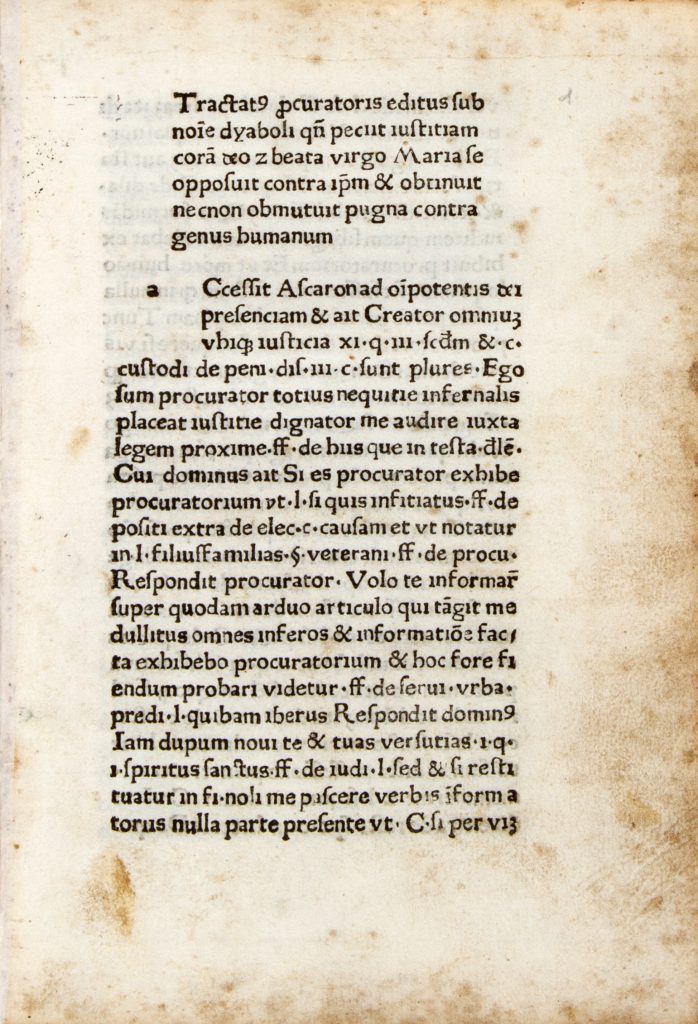 Tractatꝰ ꝓcuratoris editus ſub
noīe dyaboli qn̄ peciit iuſtitiam
corā deo ⁊ beata virgo Maria ſe
oppoſuit contra ip̄m & obtinuit
necnon obmutuit pugna contra
genus humanum
a Cceſſit Aſcaron ad oīpotentis dei
preſenciam & ait Creator omniuꝫ
vbiqꝫ iuſticia xi·q·iii·ſcd̄m &·c·
cuſtodi de peni·diſ·iii·c·ſunt plures·Ego
ſum procurator totius nequitie infernalis
placeat iuſtitie dignator me audire iuxta
legem proxime·ff·de hiis que in teſta·dl̄e·
Cui dominus ait Si es procurator exhibe
procuratorium vt·l·ſi quis infitiatus·ff·de
poſiti extra de elec·c·cauſam et vt notatur
in·l·filiuſfamilias·§·veterani·ff·de procu·
Reſpondit procurator·Volo te informar̄
ſuper quodam arduo articulo qui tāgit me
dullitus omnes inferos & informatiōe fac/
ta exhibebo procuratorium & hoc fore fi
endum probari videtur·ff·de ſerui·vrba·
predi·l·quibam iberus Reſpondit dominꝰ
Iam dupum noui te & tuas verſutias·i·q·
i·ſpiritus ſanctus·ff·de iudi·l·ſed & ſi reſti
tuatur in fi·noli me paſcere verbis īform a
torius nulla parte preſente vt· C·ſi per viꝫ